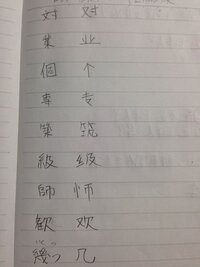 対 对
業 业
個 个
専 专
築 筑
級 级
師 师
歓 欢
幾つ 几